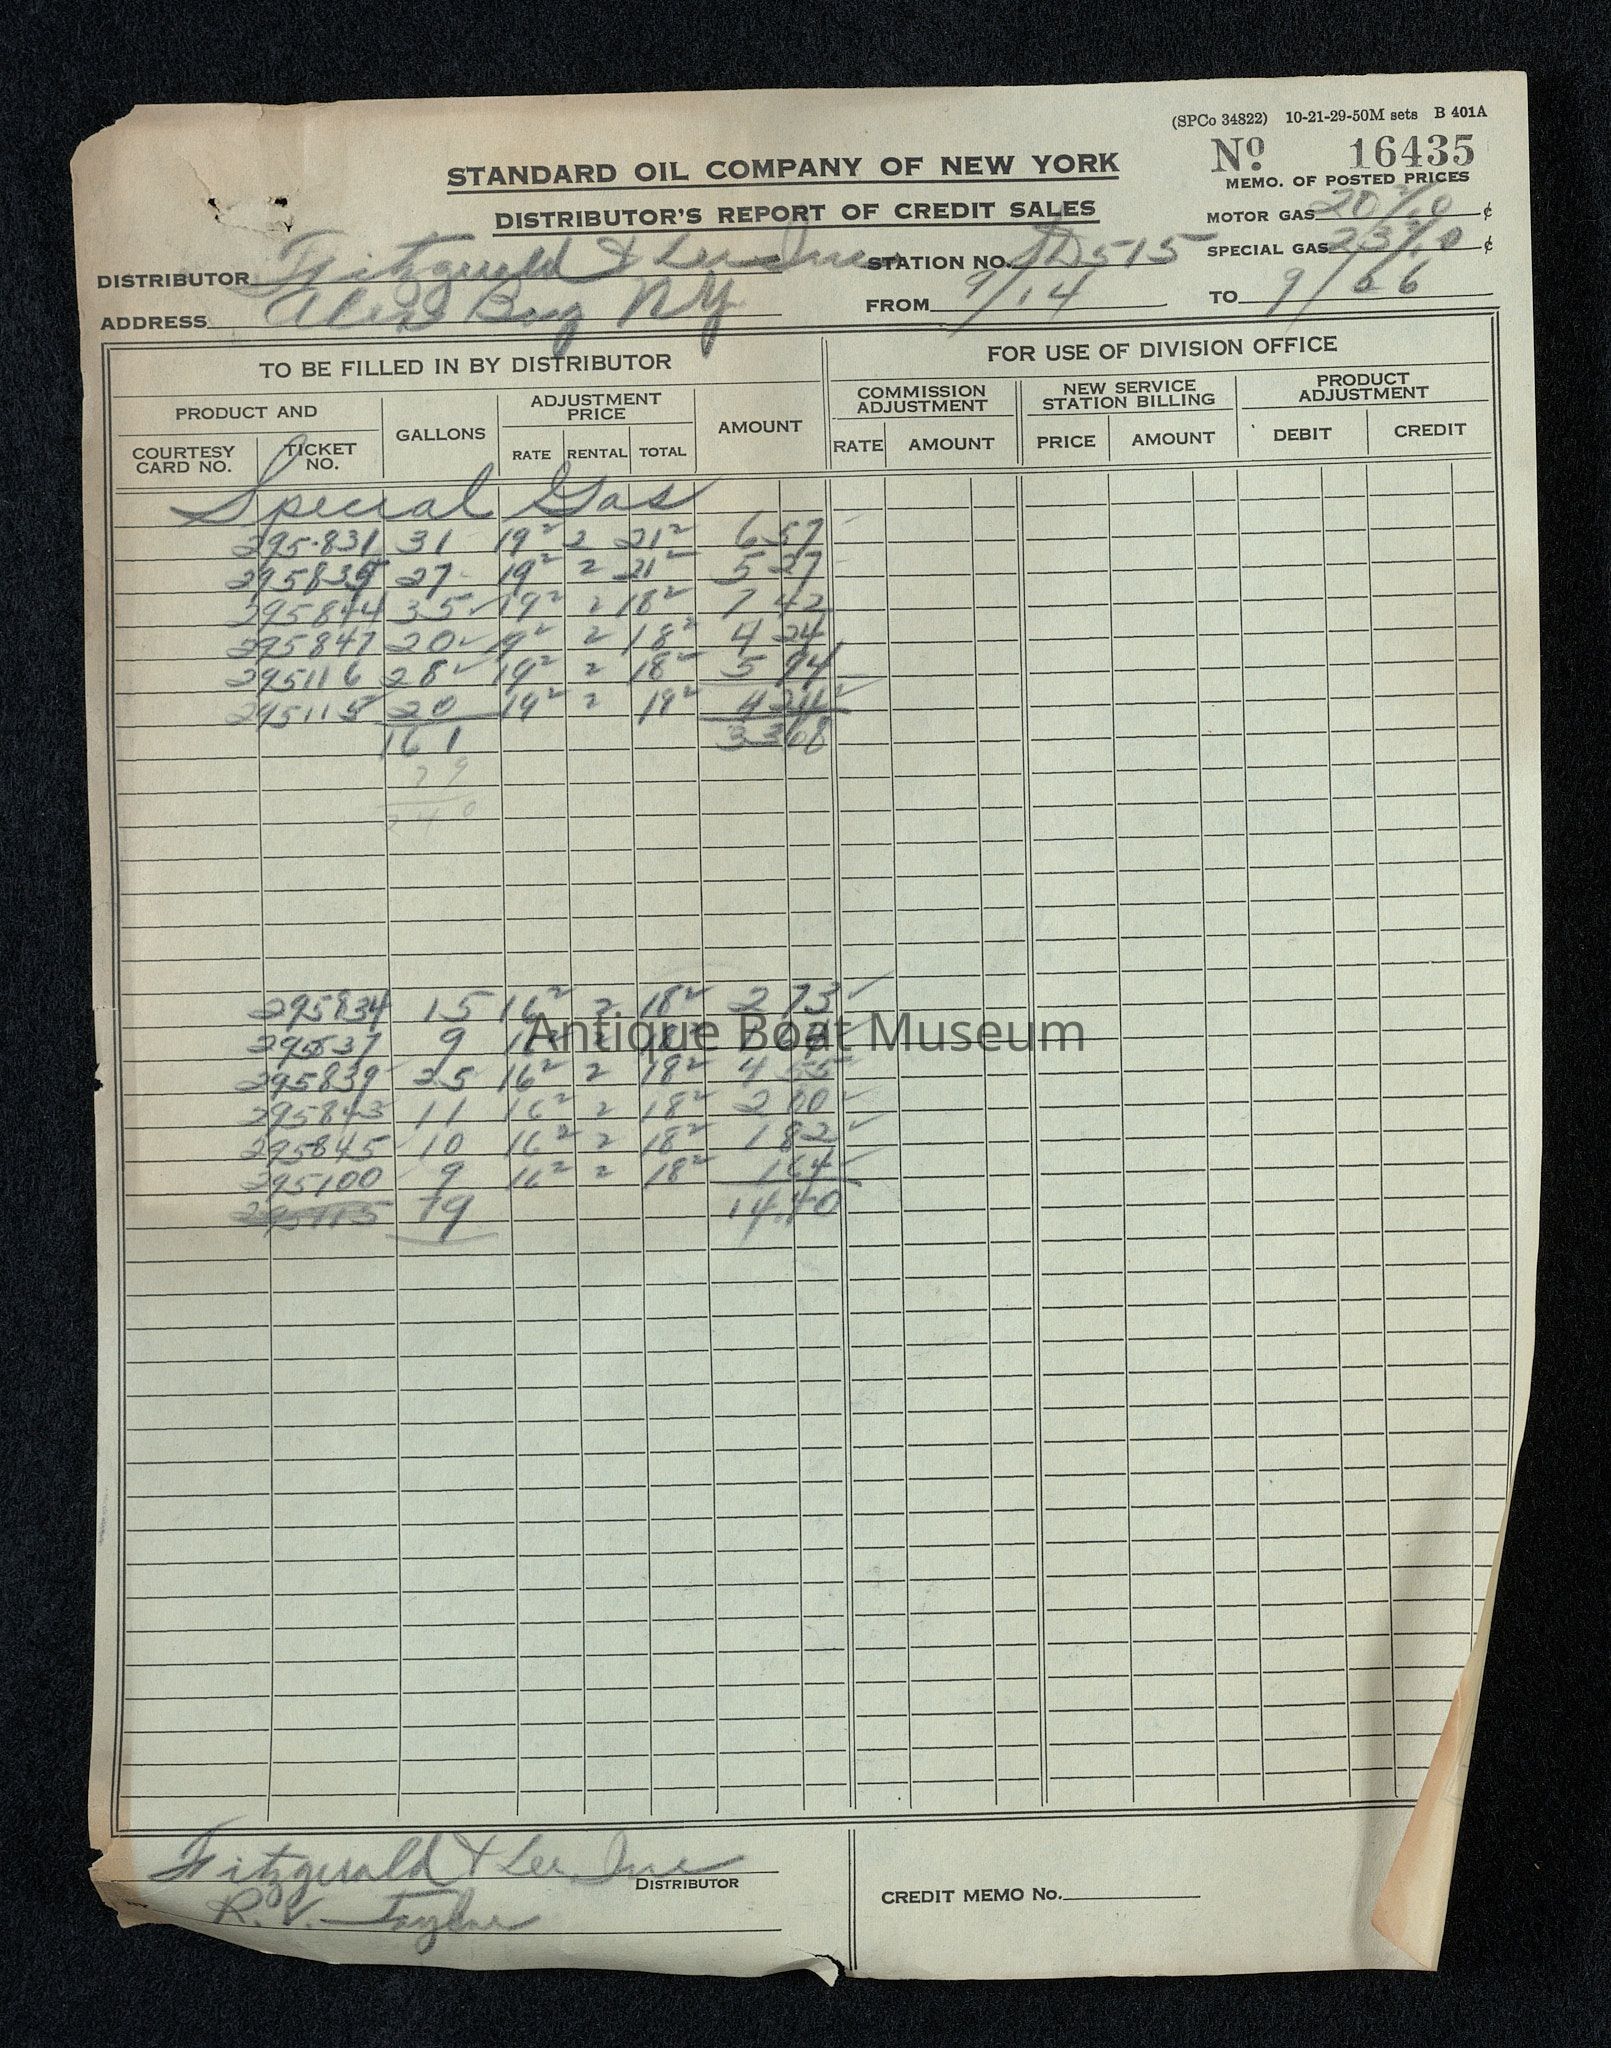 (SPCo 34822) 10-21-29-50M sets B 401A
No 16435
STANDARD OIL COMPANY OF NEW YORK
DISTRIBUTOR'S REPORT OF CREDIT SALES
MEMO. OF POSTED PRICES
MOTOR GAS 20 2/10 ¢
SPECIAL GAS 23 2/10 ¢
DISTRIBUTOR Fitzgerald & Lee Inc. STATION NO. SD515
ADDRESS Alex Bay NY FROM 9/14 TO 9/
TO BE FILLED IN BY DISTRIBUTOR FOR USE OF DIVISION OFFICE
PRODUCT AND GALLONS ADJUSTMENT PRICE AMOUNT COMMISSION ADJUSTMENT NEW SERVICE STATION BILLING PRODUCT ADJUSTMENT
COURTESY CARD NO. TICKET NO. RATE RENTAL TOTAL RATE AMOUNT PRICE AMOUNT DEBIT CREDIT
Special Gas
295831 31 19 2 2 21 2 6 57
295835 27 19 2 2 21 2 5 27
295844 35 19 2 2 18 2 7 42
295847 20 19 2 2 18 2 4 24
295116 28 19 2 2 18 2 5 94
295115 20 19 2 2 19 2 4 24
161 33 68
79
240
295834 15 16 2 2 18 2 2 73
295837 9 16 2 2 18 2 1 64
295839 25 16 2 2 18 2 4 55
295843 11 16 2 2 18 2 2 00
295845 10 16 2 2 18 2 1 82
295100 9 16 2 2 18 2 1 64
295115 79 14.40
Antique Boat Museum
Fitzgerald & Lee, Inc
DISTRIBUTOR
R. V.
CREDIT MEMO No.